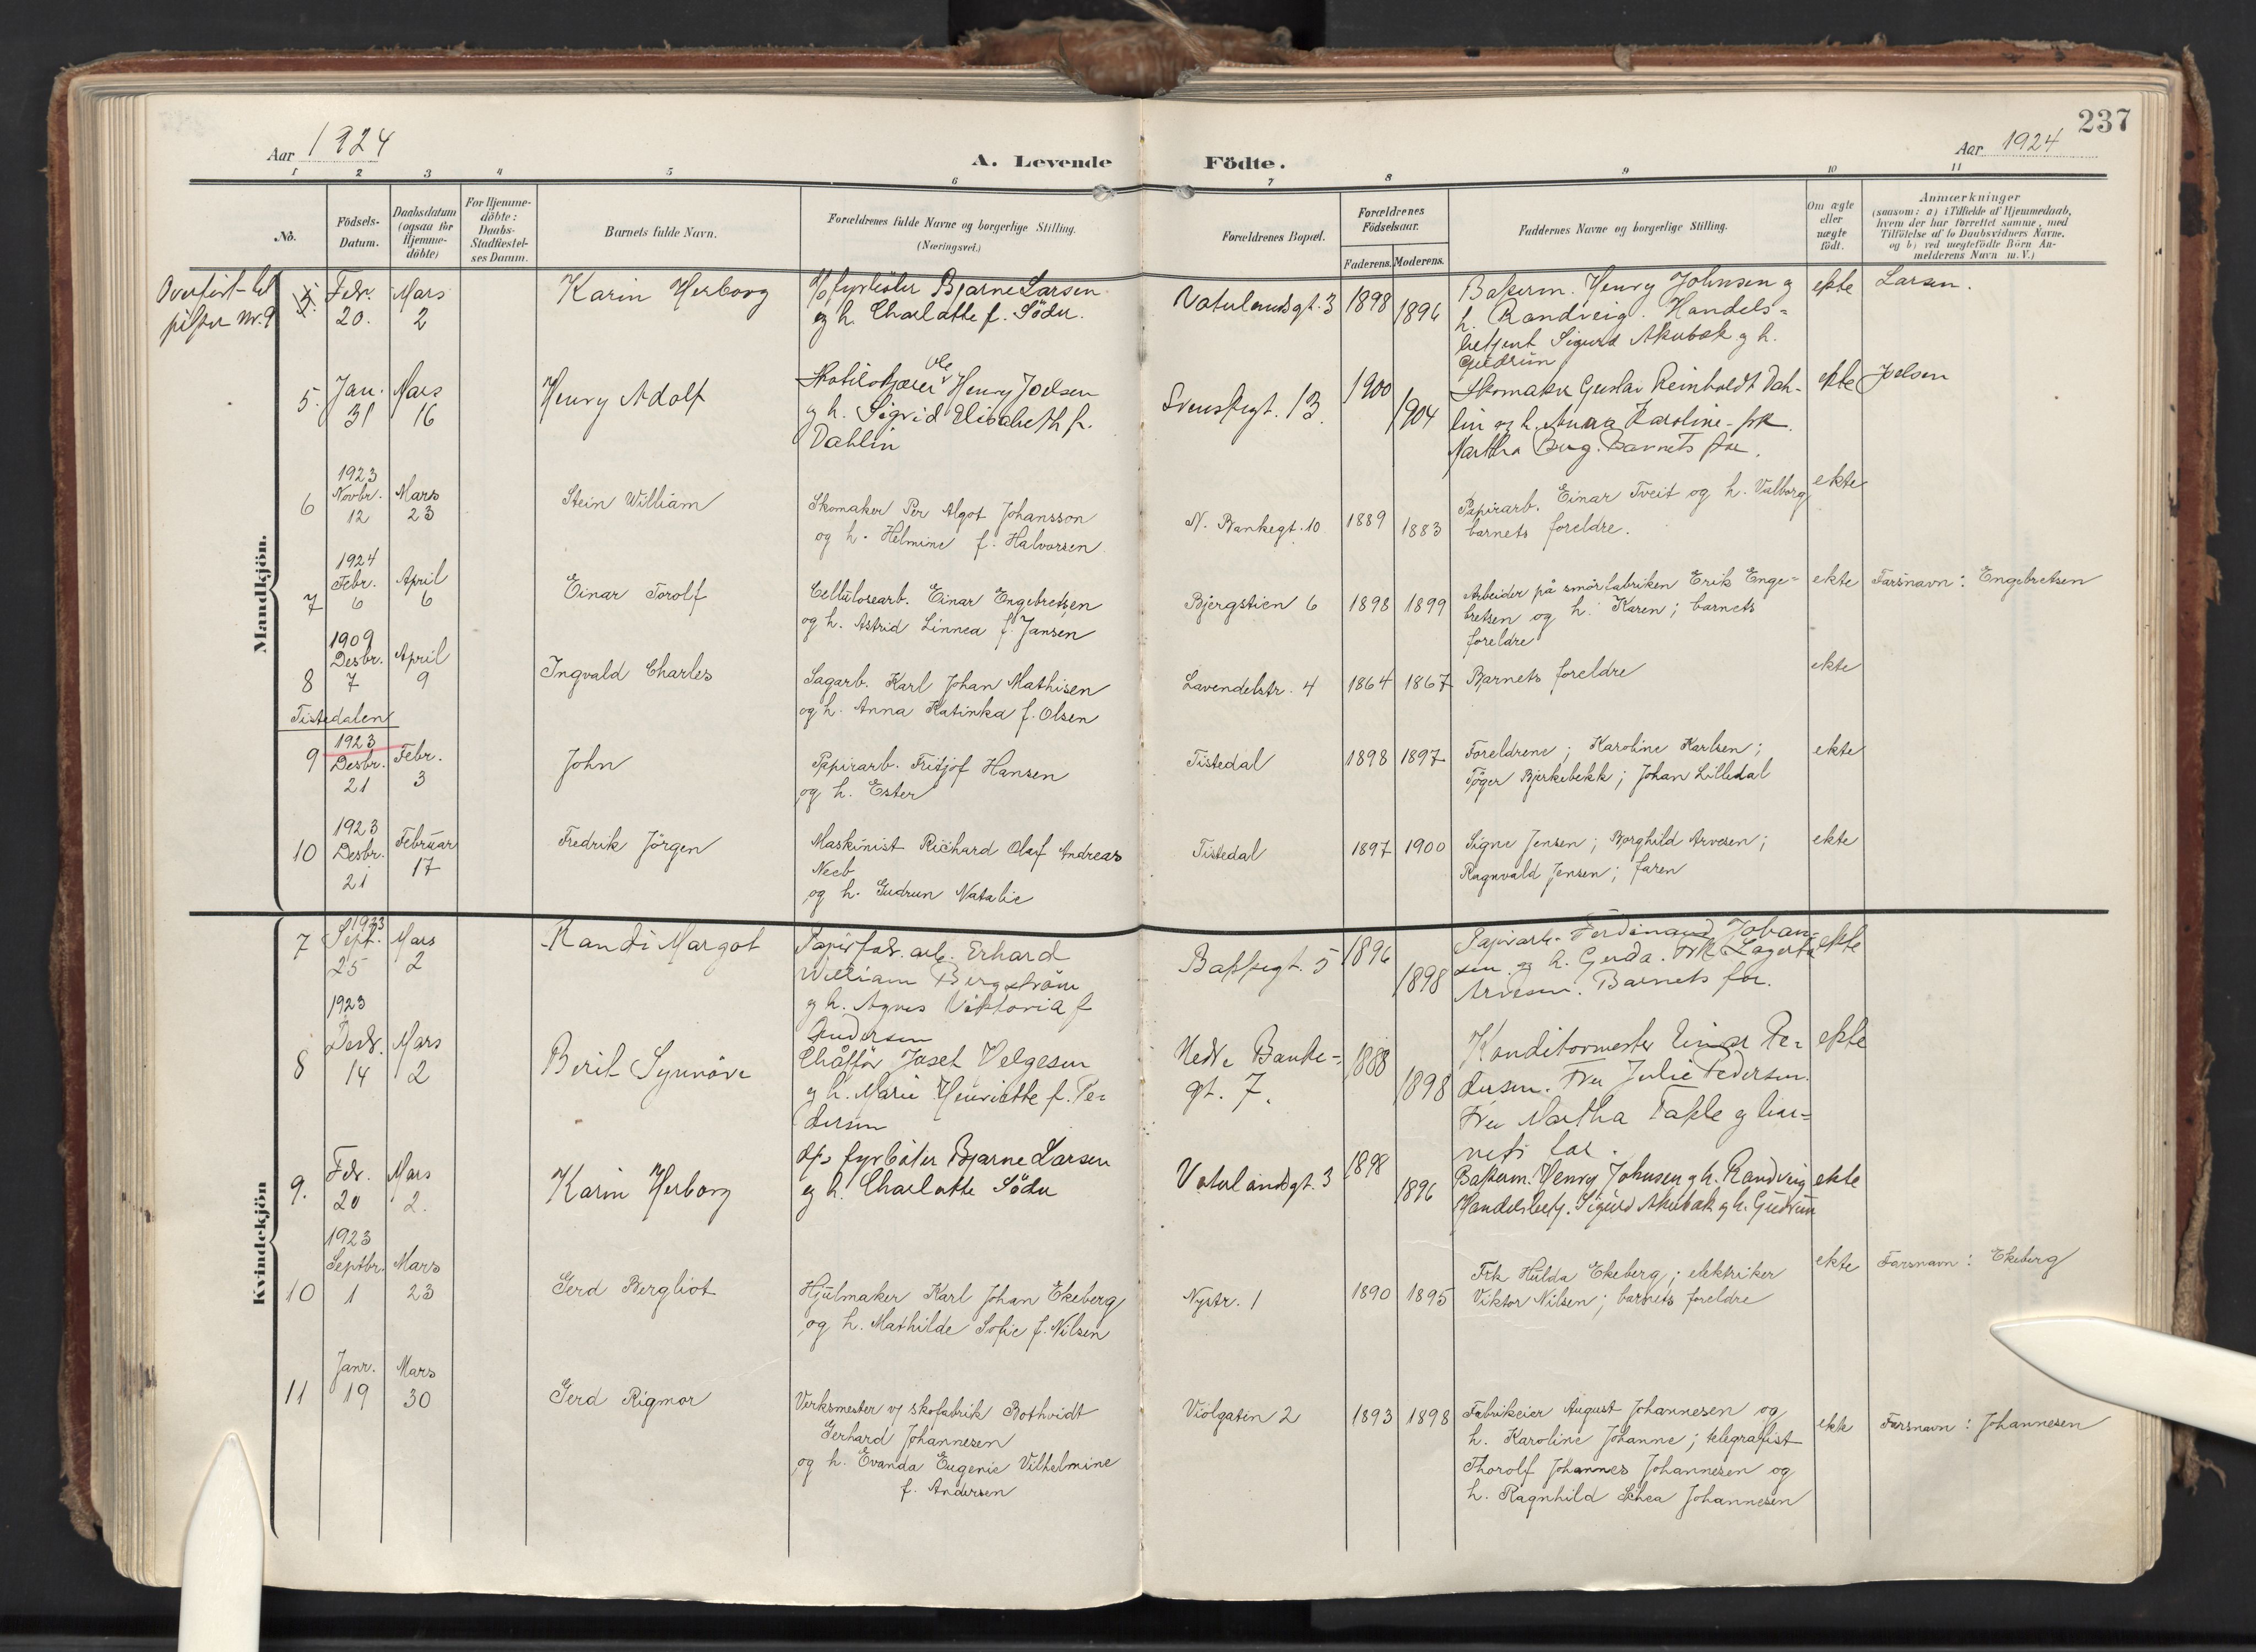 237
Aar 1924
A. Levende Födte.
Aar 1924
1 2 3 4 5 6 7 8 9 10 11
No.
Födsels-
Datum.
Daabsdatum
(ogsaa for
Hjemme-
döbte)
For Hjemme-
döbte:
Daabs-
Stadfæstel-
ses Datum.
Barnets fulde Navn.
Forældrenes fulde Navne og borgerlige Stilling.
(Næringsvei.)
Forældrenes Bopæl.
Forældrenes
Födselsaar.
Faderens. Moderens.
Faddernes Navne og borgerlige Stilling.
Om ægte
eller
uægte
födt.
Anmærkninger
(saasom: a) i Tilfælde af Hjemmedaab,
hvem der har forrettet samme, med
Tilföielse af to Daabsvidners Navne,
og b) ved uægtefödte Börn An-
melderens Navn m. V.)
Mandkjön.
Overfört til
piker nr. 9
5. Febr.
20.
Mars
2
Karin Herborg
fyrböter Bjarne Larsen
og h. Charlotte f. Söder.
Vaterlandsgt. 3
1898
1896
Bakerm. Henry Johnsen og
h. Randveig. Handels-
betjent Sigurd Akubak og h.
Gudrun
ekte
Larsen.
5. Jan.
31
Mars
16
Henry Adolf
Ole
Henry Joelsen
og h. Sigrid Elisabeth f.
Dahlin
Svenskegt. 13.
1900
1904
Skomaker Gustav Reinholdt Dah-
lin og h. Anna Karoline - frk.
Martha Berg. Barnets far.
ekte
Joelsen
6
1923
Novbr.
12
Mars
23
Stein William
Skomaker Per Algot Johansson
og h. Helmine f. Halvorsen
N. Bankegt. 10
1889
1883
Papirarb. Einar Tveit og h. Valborg
barnets foreldre.
ekte
7
1924
Febr.
6
April
6
Einar Torolf
Cellulosearb. Einar Engebretsen
og h. Astrid Linnea f. Jansen
Bjergstien 6
1898
1899
Arbeider på smörfabriken Erik Enge-
bretsen og h. Karen; barnets
foreldre
ekte
Farsnavn: Engebretsen
8
1909
Desbr.
7
April
9
Ingvald Charles
Sagarb. Karl Johan Mathisen
og h. Anna Katinka f. Olsen
Lavendelstr. 4
1864
1867
Barnets foreldre
ekte
Tistedalen
9
1923
Desbr.
21
Febr.
3
John
Papirarb. Fritjof Hansen
og h. Ester
Tistedal
1898
1897
Foreldrene; Karoline Karlsen;
Töger Bjerkebekk; Johan Lilledal
ekte
10
1923
Desbr.
21
Februar
17
Fredrik Jörgen
Maskinist Richard Olaf Andreas
Neeb
og h. Gudrun Natalie
Tistedal
1897
1900
Signe Jensen; Borghild Arvesen;
Ragnvald Jensen; faren
ekte
Kvindekjön
7
1923
Sept.
25
Mars
2
Randi Margot
Papirfabr. arb. Erhard
William Bergström
og h. Agnes Viktoria f
Andersen
Bakkegt. 5
1896
1898
Papirarb. Ferdinand Johan-
sen og h. Gerda. Frk Lagerta
Arvesen. Barnets far.
ekte
8
1923
Desbr.
14
Mars
2
Berit Synnöve
Chåfför Josef Helgesen
og h. Marie Henriette f. Pe-
dersen
Nedre Banke-
gt. 7.
1888
1898
Konditormester Einar Pe-
dersen. Fru Julie Pedersen.
Fru Martha Takle og bar-
nets far.
ekte
9.
Febr.
20
Mars
2.
Karin Herborg
fyrböter Bjarne Larsen
og h. Charlotte Söder
Vaterlandsgt. 3
1898
1896
Bakerm. Henry Johnsen og h. Randveig
Handelsbetj. Sigurd Akubak og h. Gudrun
ekte
10
1923
Septbr.
1
Mars
23
Gerd Bergliot
Hjulmaker Karl Johan Ekeberg
og h. Mathilde Sofie f. Nilsen
Nystr. 1
1890
1895
Frk Hulda Ekeberg; elektriker
Viktor Nilsen; barnets foreldre
ekte
Farsnavn: Ekeberg
11
Janr.
19
Mars
30
Gerd Rigmor
Verksmester v/ skofabrik Bothvidt
Gerhard Johannesen
og h. Evanda Eugenie Vilhelmine
f. Andersen
Violgaten 2
1893
1898
Fabrikeier August Johannesen og
h. Karoline Johanne; telegrafist
Thorolf Johannes Johannesen og
h. Ragnhild Johannesen
ekte
Farsnavn: Johannesen